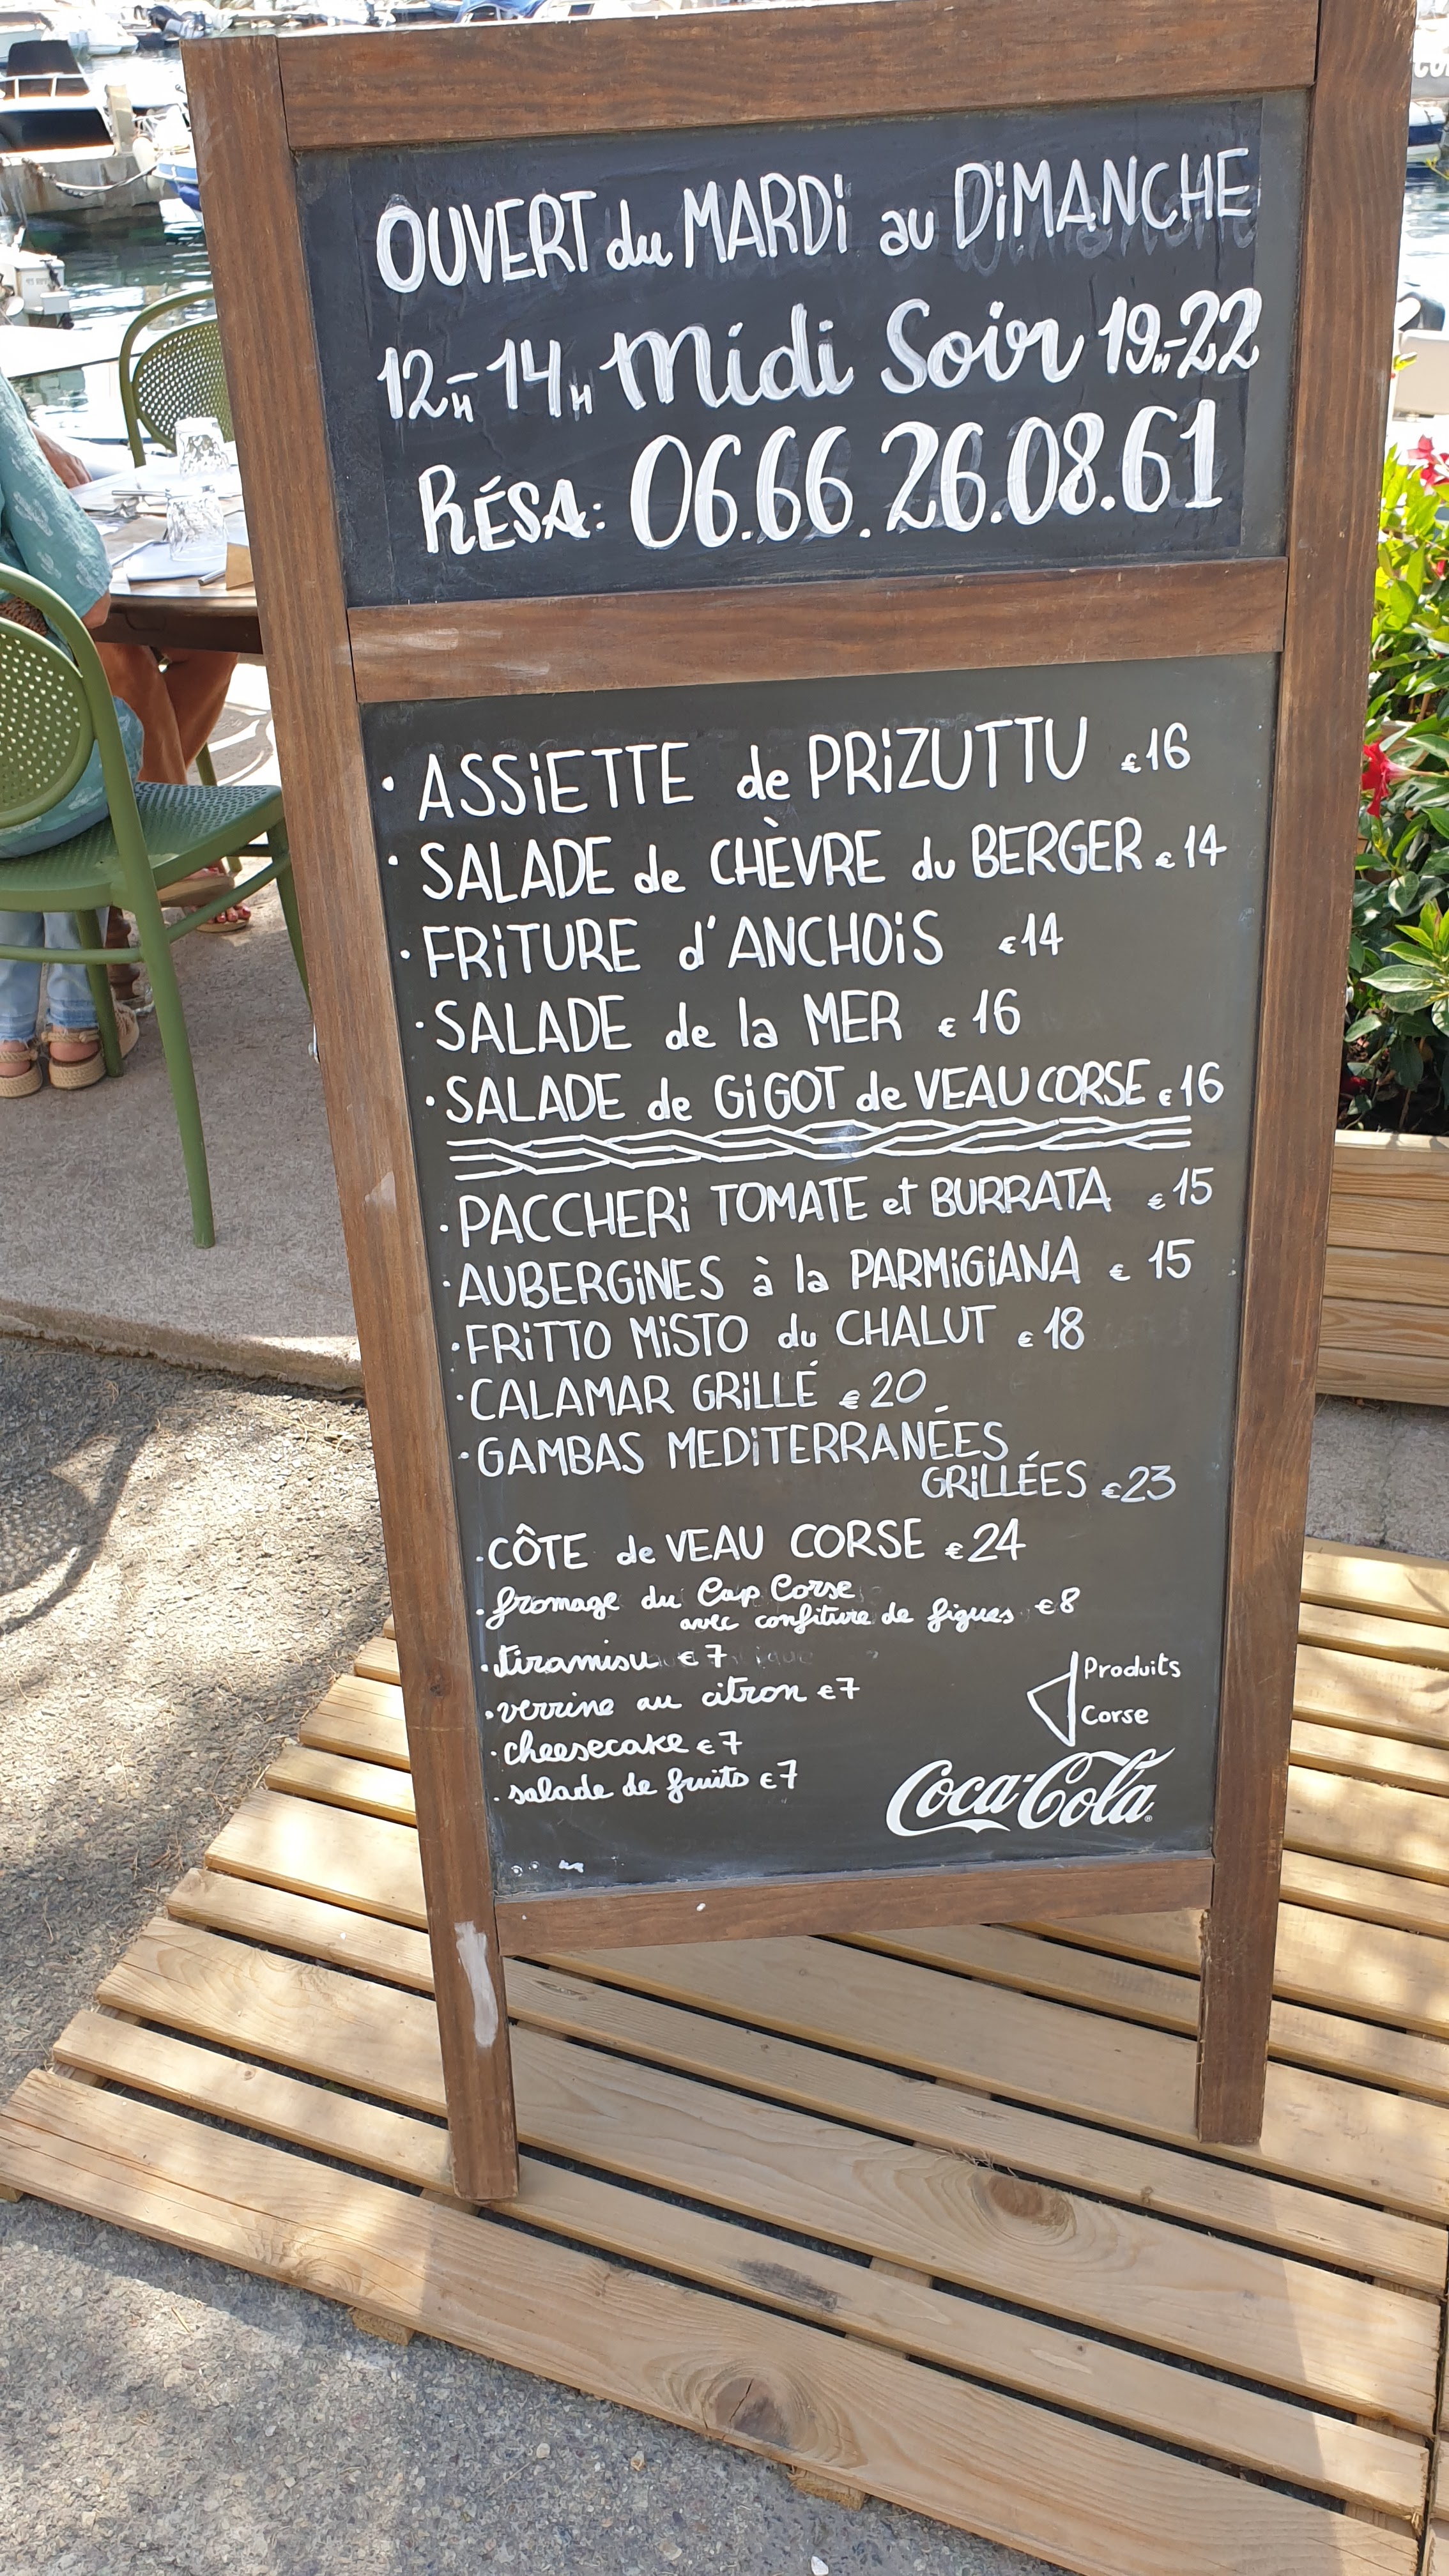 OUVERT du MARDi au DiMANCHE
12H-14H Midi Soir 19H-22
RÉSA: 06.66.26.08.61
• ASSiETTE de PRiZUTTU €16
• SALADE de CHÈVRE du BERGER € 14
• FRiTURE d'ANCHOiS €14
• SALADE de la MER € 16
• SALADE de GiGOT de VEAU CORSE € 16
• PACCHERi TOMATE et BURRATA € 15
• AUBERGiNES à la PARMiGiANA € 15
• FRiTTO MiSTO du CHALUT € 18
• CALAMAR GRiLLÉ € 20
• GAMBAS MEDiTERRANÉES
GRiLLÉES €23
• CÔTE de VEAU CORSE €24
• fromage du Cap Corse
avec confiture de figues €8
• tiramisu €7
• verrine au citron €7
• cheesecake €7
• salade de fruits €7
Produits
Corse
Coca-Cola®